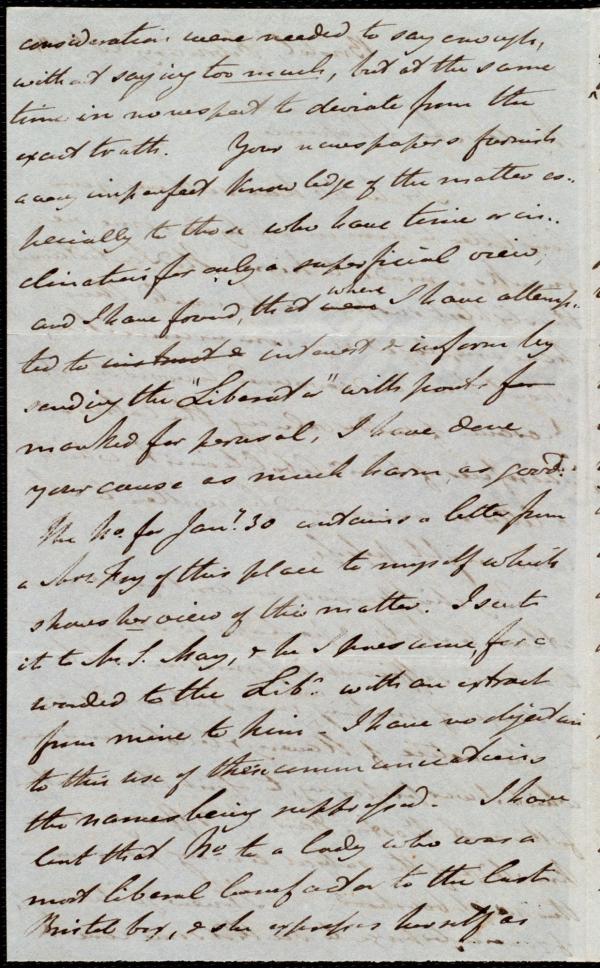 consideration were needed to say enough,
without saying too much, but at the same
time in no respect to deviate from the
exact truth. Your newspapers furnish
a very imperfect knowledge of the matter es..
pecially to those who have time or in..
clination for only a superficial view,
and I have found, that were where I have attemp.
ted to instruct & interest & inform by
sending the "Liberator" with points for
marked for perusal, I have done
your cause as much harm as good.
The No. for Jany. 30 contains a letter from
a Mrs of this place to myself which
shows her view of this matter. I sent
it to Mr. S. May, & he I presume for=
warded to the Libr. with an extract
from mine to him - I have no objection
to this use of these communications
the names being suppressed. I have
lent that No. to a lady who was a
most liberal benefactor to the last
Bristol box, & she expresses herself as